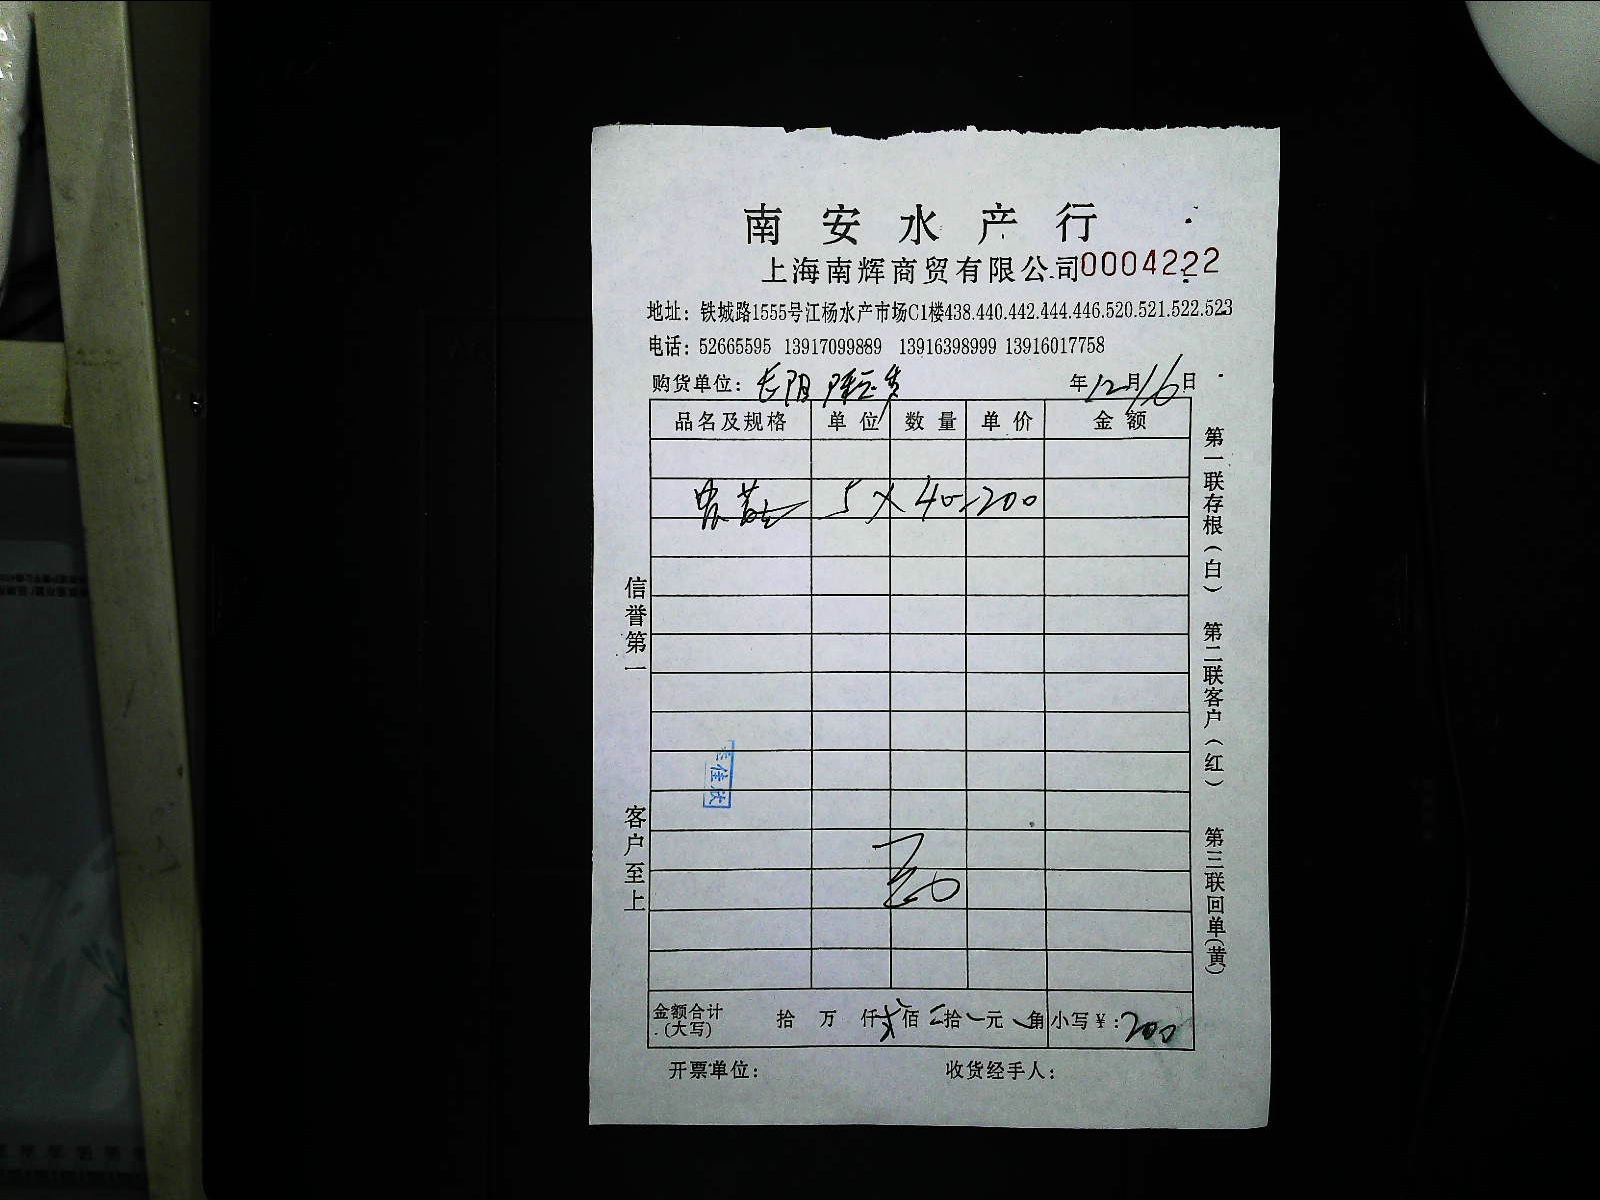 南安水产行
上海南辉商贸有限公司0004222
地址：铁城路1555号江杨水产市场C1楼438.440.442.444.446.520.521.522.523
电话：52665595 13917099889 13916398999 13916017758
购货单位： 年12月16日
品名及规格 单位 数量 单价 金额
5×40=200
信誉第一
客户至上
佳欣
第一联存根（白） 第二联客户（红） 第三联回单（黄）
金额合计（大写） 拾 万 仟 佰 拾 元 角 小写￥：200
开票单位： 收货经手人：